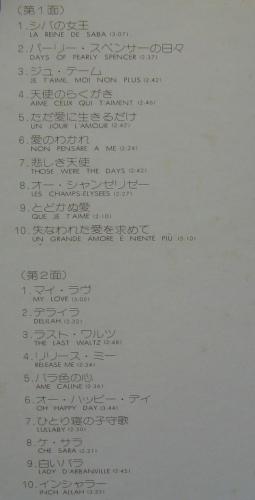 (第1面)
1.シバの女王
LA REINE DE SABA (3:07)
2.パーリー・スペンサーの日々
DAYS OF PEARLY SPENCER (2:37)
3.ジュ・テーム
JE T'AIME, MOI NON PLUS (2:42)
4.天使のらくがき
AIME CEUX QUI T'AIMENT (2:46)
5.ただ愛に生きるだけ
UN JOUR L'AMOUR (2:47)
6.愛のわかれ
NON PENSARE A ME (2:24)
7.悲しき天使
THOSE WERE THE DAYS (2:42)
8.オー・シャンゼリゼー
LES CHAMPS-ELYSEES (2:27)
9.とどかぬ愛
QUE JE T'AIME (2:10)
10.失なわれた愛を求めて
UN GRANDE AMORE E NIENTE PIÙ (5:10)
(第2面)
1.マイ・ラヴ
MY LOVE (3:00)
2.デライラ
DELILAH (2:32)
3.ラスト・ワルツ
THE LAST WALTZ (2:48)
4.リリース・ミー
RELEASE ME (2:34)
5.バラ色の心
AME CALINE (2:36)
6.オー・ハッピー・デイ
OH HAPPY DAY (3:44)
7.ひとり寝の子守歌
LULLABY (2:30)
8.ケ・サラ
CHE SARA (2:21)
9.白いバラ
LADY D'ARBANVILLE (2:45)
10.インシャラー
INCH ALLAH (3:22)